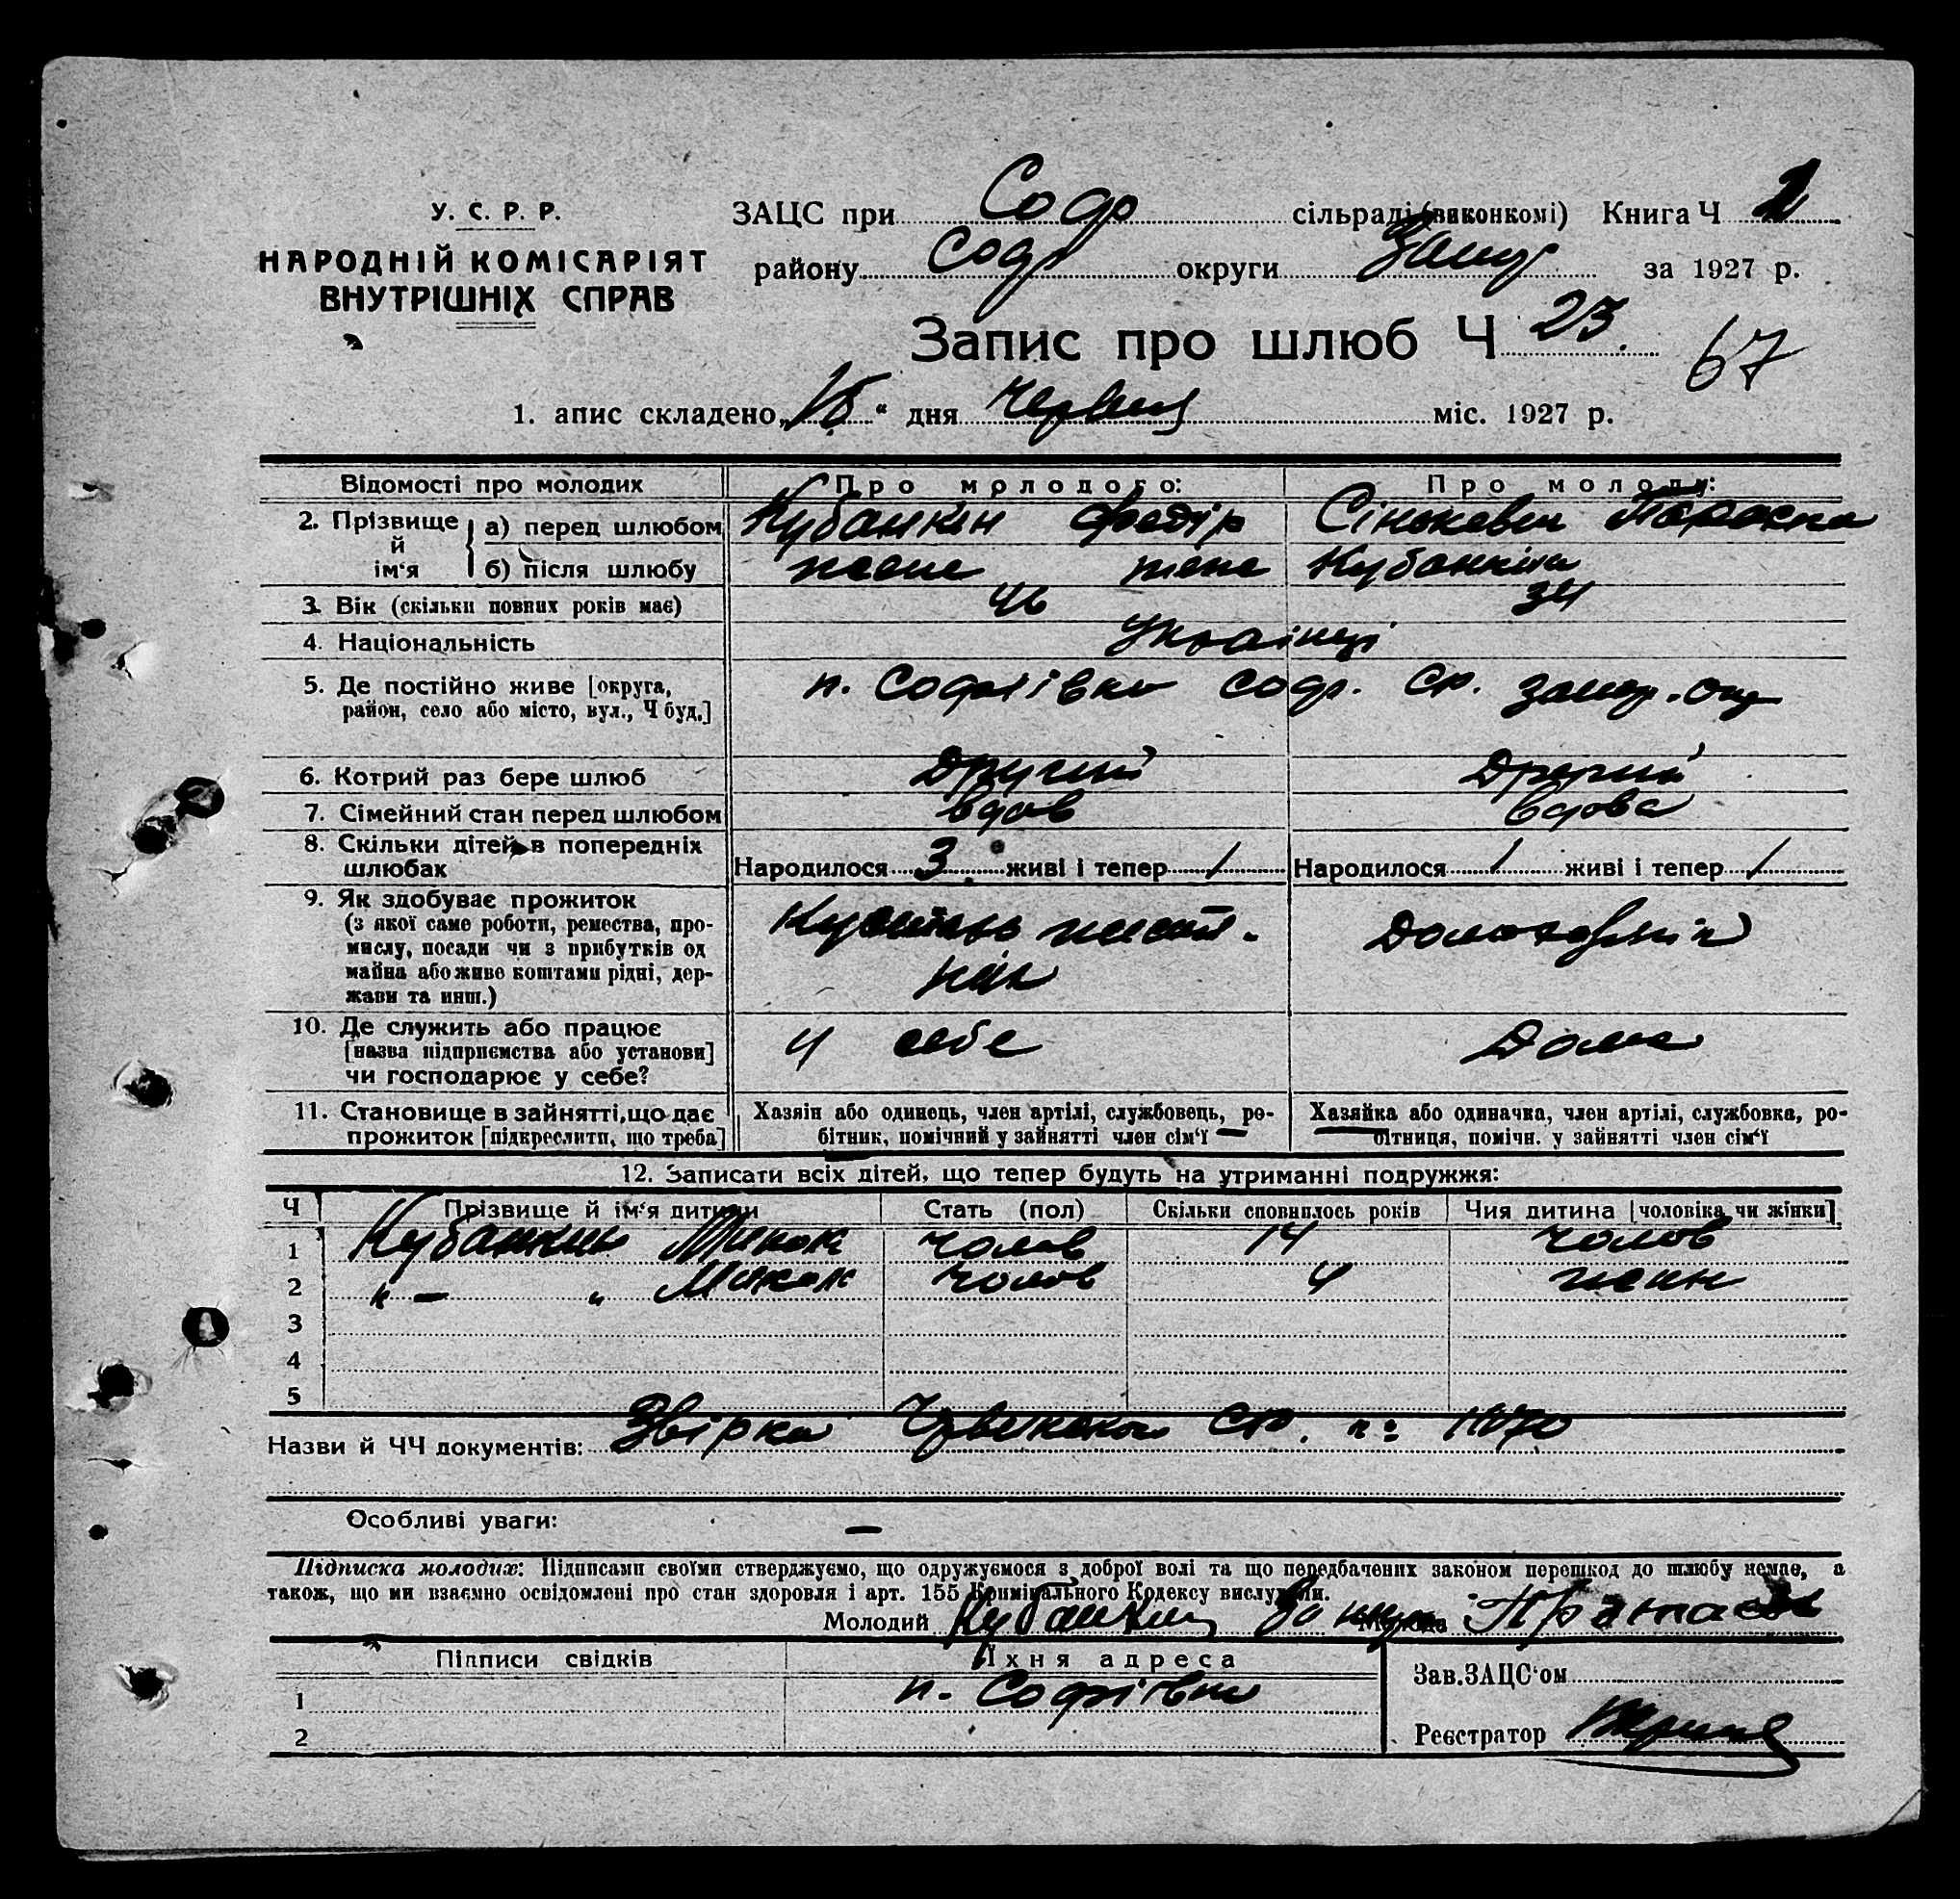 У. С. Р. Р.
НАРОДНІЙ КОМІСАРІЯТ
ВНУТРІШНІХ СПРАВ
ЗАЦС при Соф сільраді (виконкомі) Книга Ч
району Соф округи Запор за 1927 р.
Запис про шлюб Ч 23.
67
1. апис складено „ “ дня Червня міс. 1927 р.
Відомості про молодих
Про молодого:
Про молоду:
2. Прізвище й ім‘я
а) перед шлюбом Кубанкін Федір
б) після шлюбу Кубанкіна
3. Вік (скільки повних років має) 46 34
4. Національність Українці
5. Де постійно живе [округа, район, село або місто, вул., Ч буд.] п. Софіївка Соф. запор.
6. Котрий раз бере шлюб Другий Другий
7. Сімейний стан перед шлюбом вдов вдова
8. Скільки дітей в попередніх шлюбах
Народилося 3 живі і тепер 1 Народилося 1 живі і тепер 1
9. Як здобуває прожиток
(з якої саме роботи, ремества, промислу, посади чи з прибутків од майна або живе коштами рідні, держави та инш.)
10. Де служить або працює
[назва підприємства або установи]
чи господарює у себе?
У себе Дома
11. Становище в зайнятті, що дає
прожиток [підкреслити, що треба]
Хазяін або одинець, член артілі, службовець, ро-
бітник, помічний у зайнятті член сім‘ї
Хазяйка або одиначка, член артілі, службовка, ро-
бітниця, помічн. у зайнятті член сім‘ї
12. Записати всіх дітей, що тепер будуть на утриманні подружжя:
Ч Прізвище й ім‘я дитини Стать (пол) Скільки сповнилось років Чия дитина [чоловіка чи жінки]
1 Кубанкин чолов 14 чолов
2 „ — „ Микол чолов 4 жінк
3
4
5
Назви й ЧЧ документів: Звірка
Особливі уваги: —
Підписка молодих: Підписами своїми стверджуємо, що одружуємося з доброї волі та що передбачених законом перешкод до шлюбу немає, а
також, що ми взаємно освідомлені про стан здоровля і арт. 155 Кримінального Кодексу вислухали.
Молодий Кубанкин Молода
Підписи свідків Їхня адреса
1 п. Софіівка
2
Зав. ЗАЦС‘ом
Реєстратор